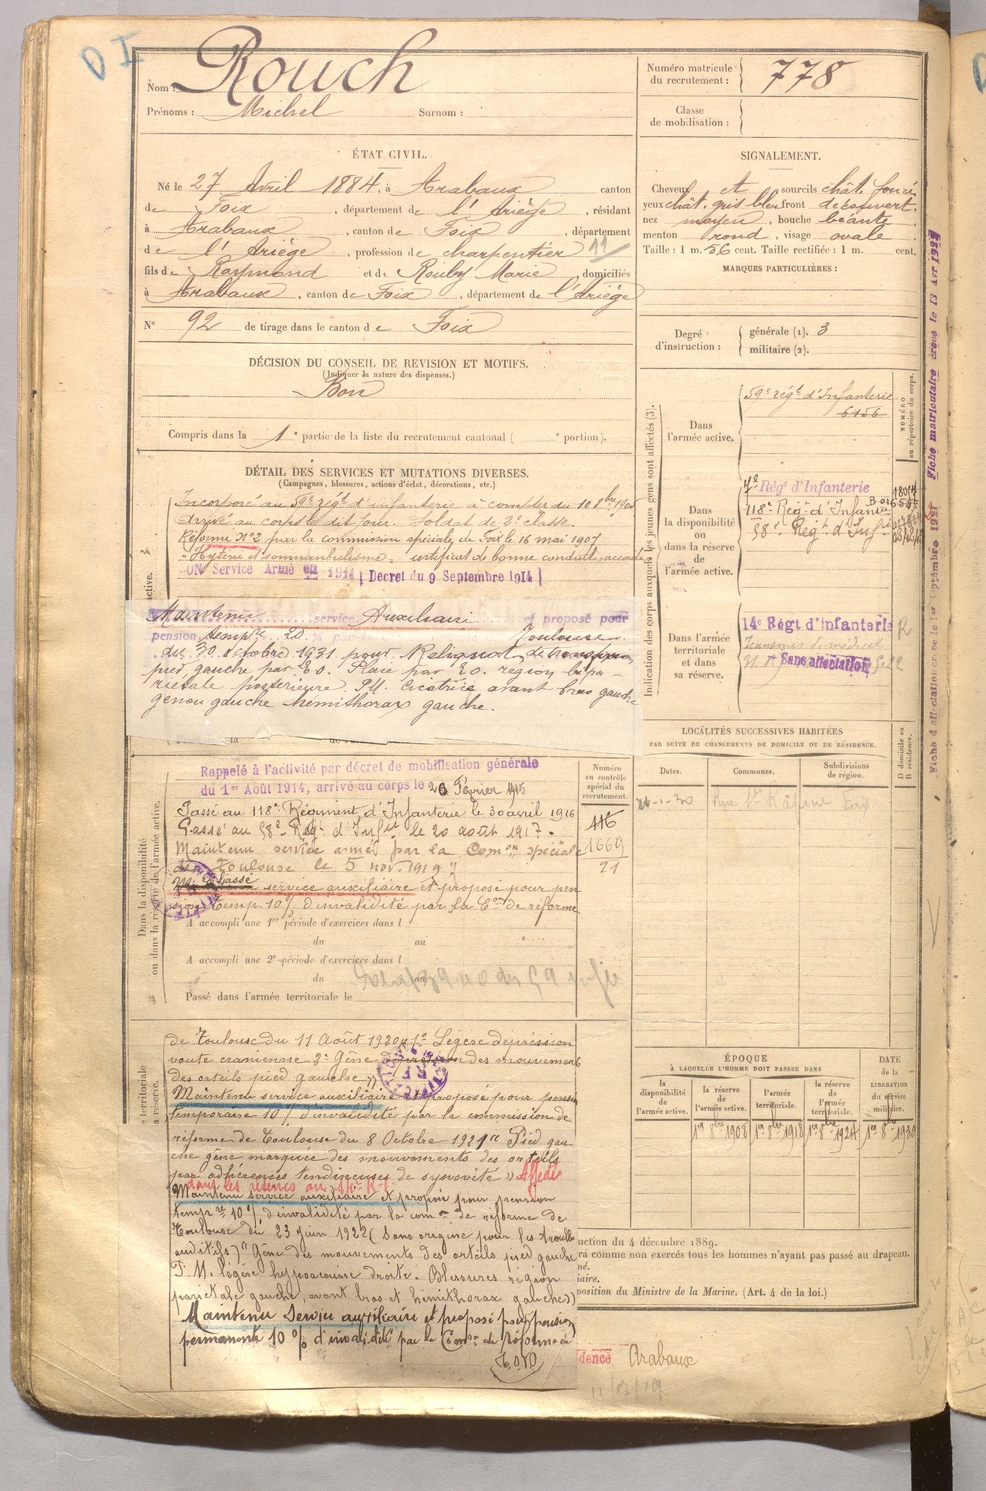 D I
Nom : Rouch
Prénoms : Michel Surnom :
Numéro matricule
du recrutement : 778
Classe
de mobilisation :
ÉTAT CIVIL.
Né le 27 Avril 1884, à Arabaux canton
de Foix, département de l'Ariège, résidant
à Arabaux, canton de Foix, département
de l'Ariège, profession de charpentier 11
fils de Raymond et de Rouby Marie domiciliés
à Arabaux, canton de Foix, département de l'Ariège
N° 92 de tirage dans le canton de Foix
SIGNALEMENT.
Cheveux et sourcils chât. foncé
yeux chât. gris bleu front découvert
nez moyen, bouche béante
menton rond, visage ovale
Taille : 1 m. 56 cent. Taille rectifiée : 1 m. cent.
MARQUES PARTICULIÈRES :
Degré
d'instruction :
générale (1). 3
militaire (2).
DÉCISION DU CONSEIL DE REVISION ET MOTIFS.
(Indiquer la nature des dispenses.)
Bon
Compris dans la 1e partie de la liste du recrutement cantonal ( e portion).
DÉTAIL DES SERVICES ET MUTATIONS DIVERSES.
(Campagnes, blessures, actions d'éclat, décorations, etc.)
Incorporé au 59e régt d'infanterie à compter du 10 8bre 1905
Arrivé au corps le dit jour. Soldat de 2e classe.
Réformé n°2 par la commission spéciale de Foix le 16 mai 1907
Hystérie et somnambulisme. certificat de bonne conduite accordé
ON Service Armé en 1914 Décret du 9 Septembre 1914
Maintenu service Auxiliaire et proposé pour
pension temp. 20 Toulouse
du 30 octobre 1931 pour
pied gauche par E.O. Plaie par E.O. région bipa-
riétale postérieure. P.M. Cicatrice avant bras gauche
genou gauche hémithorax gauche.
Indication des corps auxquels les jeunes gens sont affectés (3).
NUMÉRO
au répertoire du corps.
Dans
l'armée active.
59e régt d'Infanterie
6156
Dans
la disponibilité
ou
dans la réserve
de
l'armée active.
Régt d'Infanterie
118e Régt d'Infanterie
58e Régt d'Inf
Dans l'armée
territoriale
et dans
sa réserve.
14e Régt d'infanterie
Sans affectation
LOCALITÉS SUCCESSIVES HABITÉES
PAR SUITE DE CHANGEMENTS DE DOMICILE OU DE RÉSIDENCE.
Dates. Communes. Subdivisions
de région.
D domicile ou
R résidence.
Dans la disponibilité
ou dans la réserve de l'armée active.
Rappelé à l'activité par décret de mobilisation générale
du 1er Août 1914, arrivé au corps le 26 Février 1915
Passé au 118e Régiment d'Infanterie le 30 avril 1916
Passé au 58e Régt d'Infie le 20 août 1917.
Maintenu service armé par la Comon spéciale
de Toulouse le 5 nov. 1919
service auxiliaire et proposé pour pen
sion temp. 10% d'invalidité par la Con de réforme
A accompli une 1re période d'exercices dans l
du au
A accompli une 2e période d'exercices dans l
du au
Passé dans l'armée territoriale le
Numéro
au contrôle
spécial du
recrutement.
116
1669
21
territoriale
réserve.
de Toulouse du 11 Août 1920 1° Légère dépression
voute cranienne 2° Gêne des mouvements
des orteils pied gauche
Maintenu service auxiliaire proposé pour pension
temporaire 10% d'invalidité par la commission de
réforme de Toulouse du 8 Octobre 1921 Pied gau
che gêne marquée des mouvements des orteils
par adhérences tendineuses de synovite Affecté
dans les réserves au
Maintenu service auxiliaire et proposé pour pension
tempre 10% d'invalidité par la comon de réforme de
Toulouse du 23 juin 1922 (Sans origine pour les troubles
auditifs) Gêne des mouvements des orteils pied gauche
P.M. légère hypoacousie droite. Blessures région
pariétale gauche, avant bras et hémithorax gauches)
Maintenu Service auxiliaire et proposé pour pension
permanente 10% d'invalidité par la Comon de Réforme de
ÉPOQUE
À LAQUELLE L'HOMME DOIT PASSER DANS
DATE
de la
LIBÉRATION
du service
militaire.
la
disponibilité
de
l'armée active.
la réserve
de
l'armée active.
l'armée
territoriale.
la réserve
de
l'armée
territoriale.
1er 8bre 1908 1er 8bre 1918 1er 8bre 1924 1er 8bre 1930
uction du 4 décembre 1889.
ra comme non exercés tous les hommes n'ayant pas passé au drapeau.
né.
iaire.
position du Ministre de la Marine. (Art. 4 de la loi.)
dence Arabaux